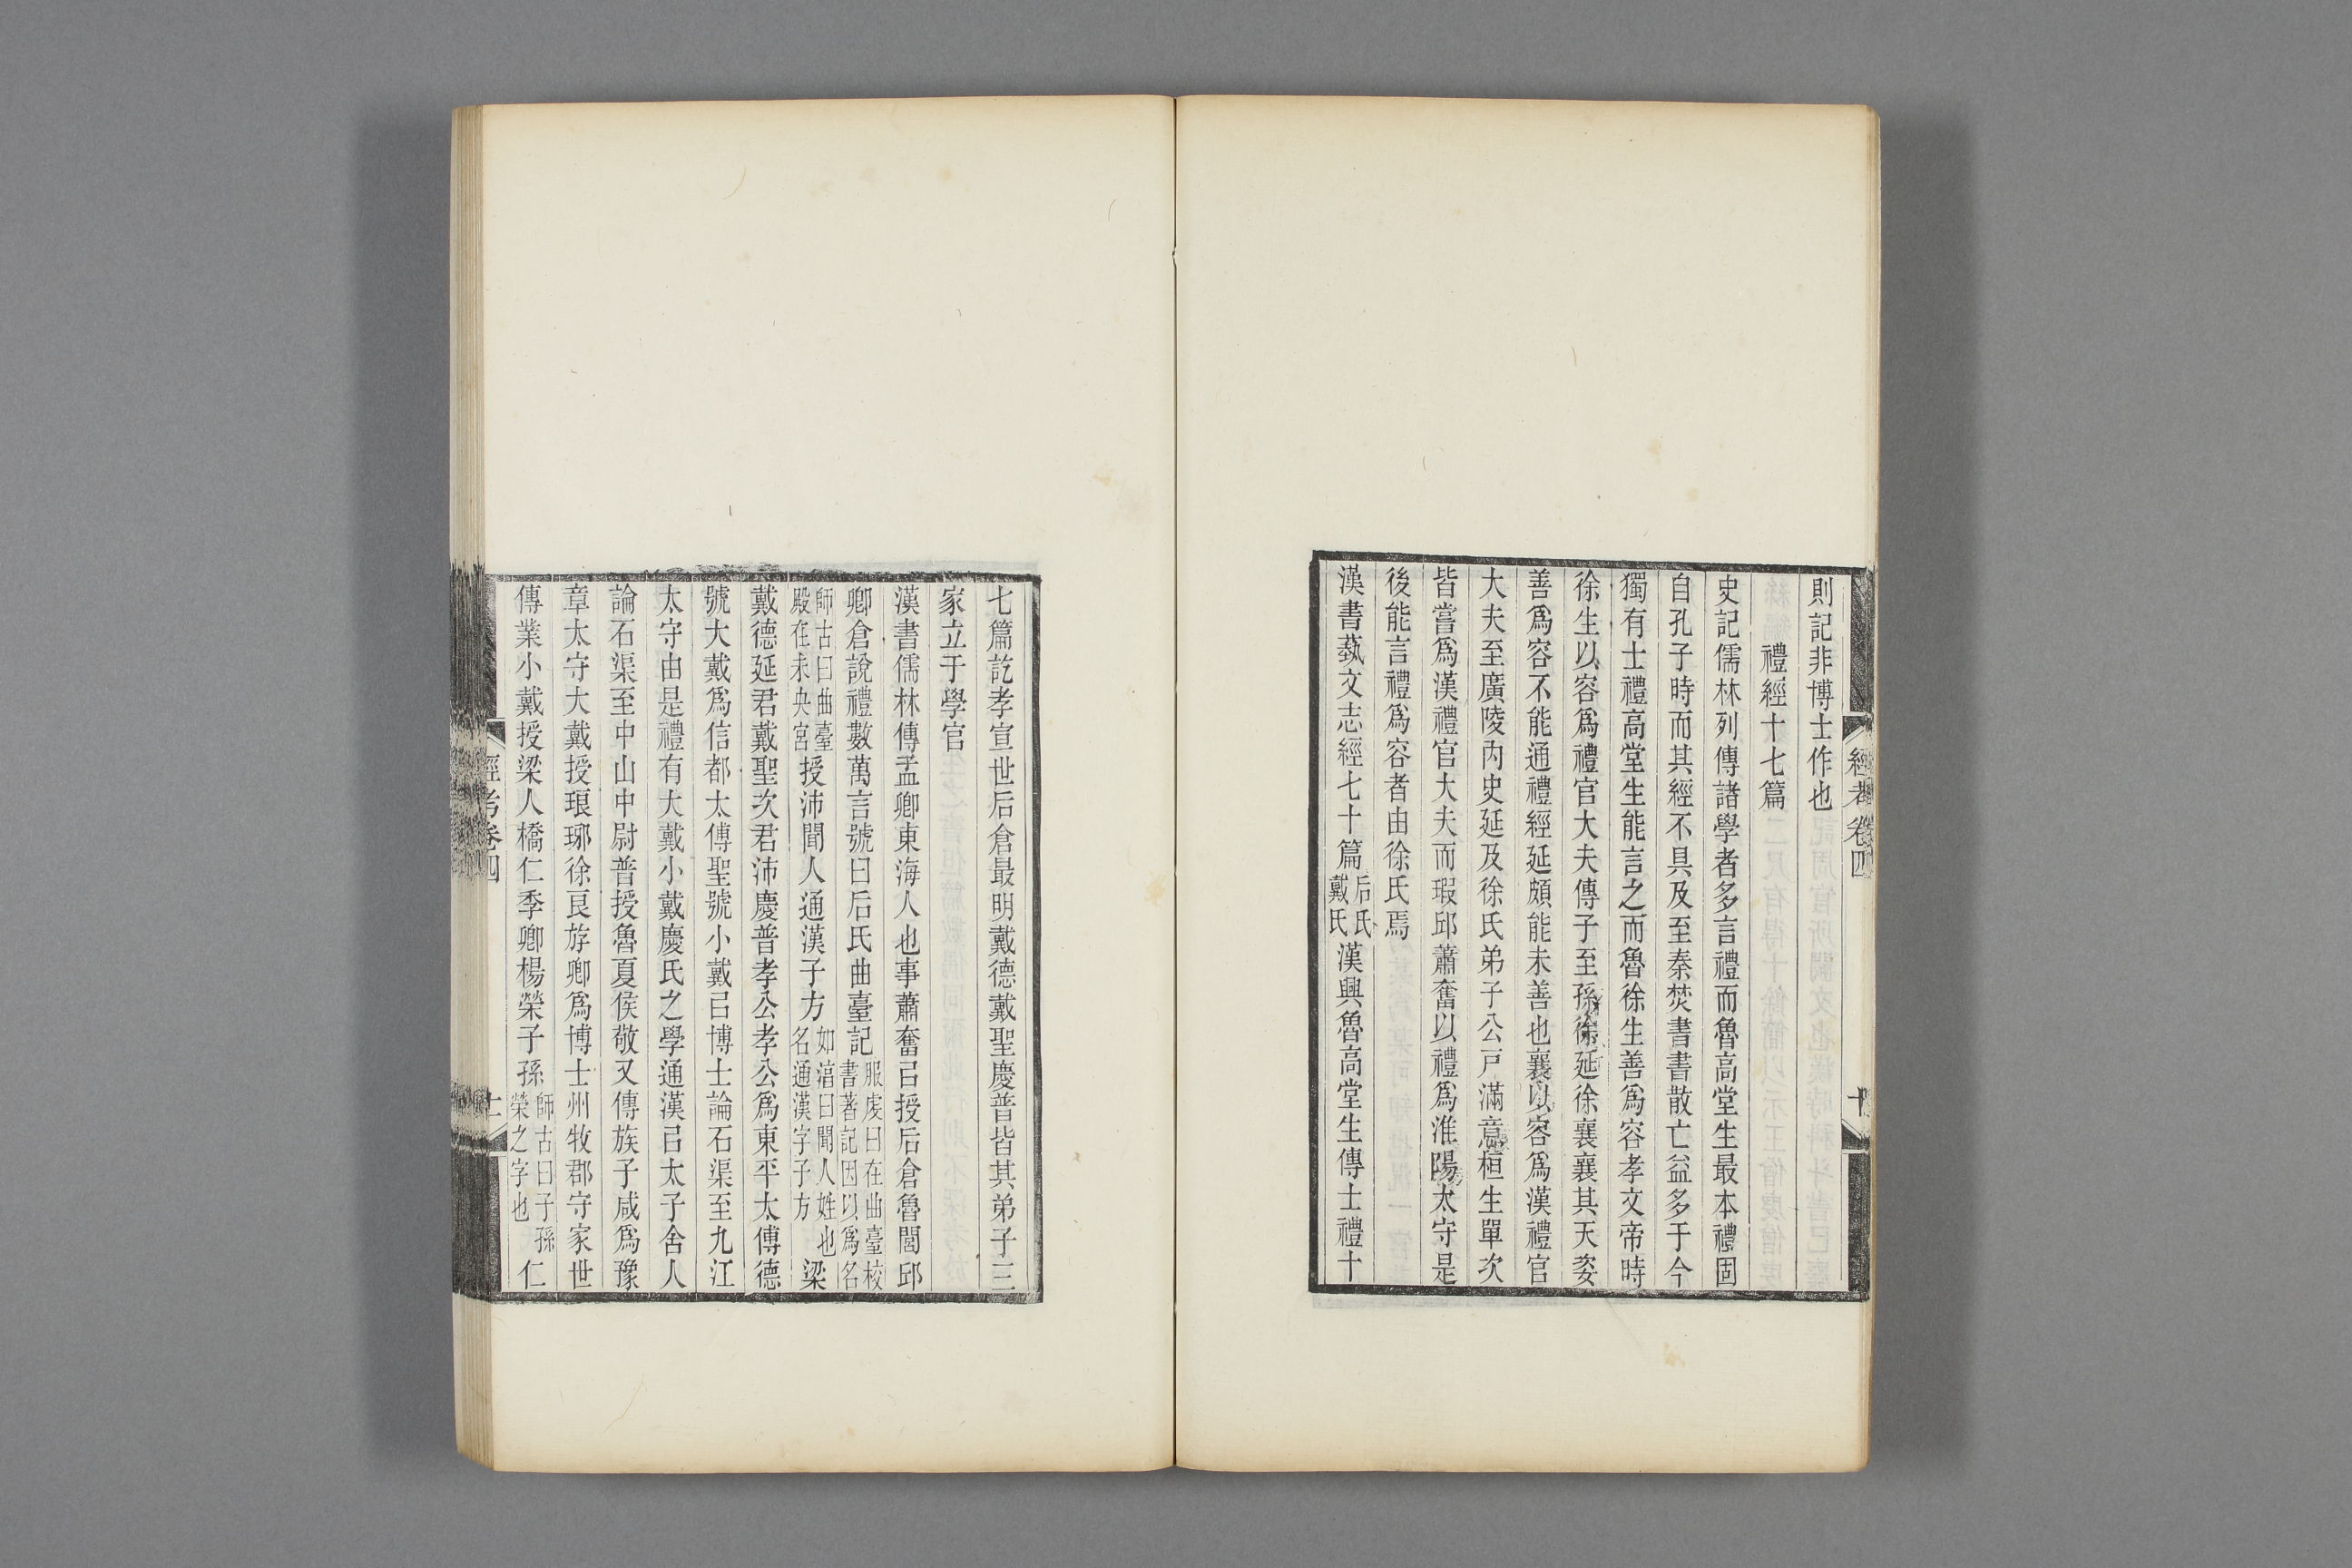 則記非博士作也
禮經十七篇
史記儒林列傳諸學者多言禮而魯高堂生最本禮固
自孔子時而其經不具及至秦焚書書散亡益多于今
獨有士禮高堂生能言之而魯徐生善爲容孝文帝時
徐生以容爲禮官大夫傳子至孫徐延徐襄襄其天姿
善爲容不能通禮經延頗能未善也襄以容爲漢禮官
大夫至廣陵內史延及徐氏弟子公戸滿意桓生單次
皆嘗爲漢禮官大夫而瑕邱蕭奮以禮爲淮陽太守是
後能言禮爲容者由徐氏焉
漢書蓺文志經七十篇后氏戴氏漢興魯高堂生傳士禮十
經考卷四
十
七篇訖孝宣世后倉最明戴德戴聖慶普皆其弟子三
家立于學官
漢書儒林傳孟卿東海人也事蕭奮㠯授后倉魯閭邱
卿倉說禮數萬言號曰后氏曲臺記服虔曰在曲臺校書著記因以爲名
師古曰曲臺殿在未央宮授沛聞人通漢子方如湻曰聞人姓也名通漢字子方梁
戴德延君戴聖次君沛慶普孝公孝公爲東平太傅德
號大戴爲信都太傅聖號小戴㠯博士論石渠至九江
太守由是禮有大戴小戴慶氏之學通漢㠯太子舍人
論石渠至中山中尉普授魯夏侯敬又傳族子咸爲豫
章太守大戴授琅琊徐良斿卿爲博士州牧郡守家世
傳業小戴授梁人橋仁季卿楊榮子孫師古曰子孫榮之字也仁
經考卷四